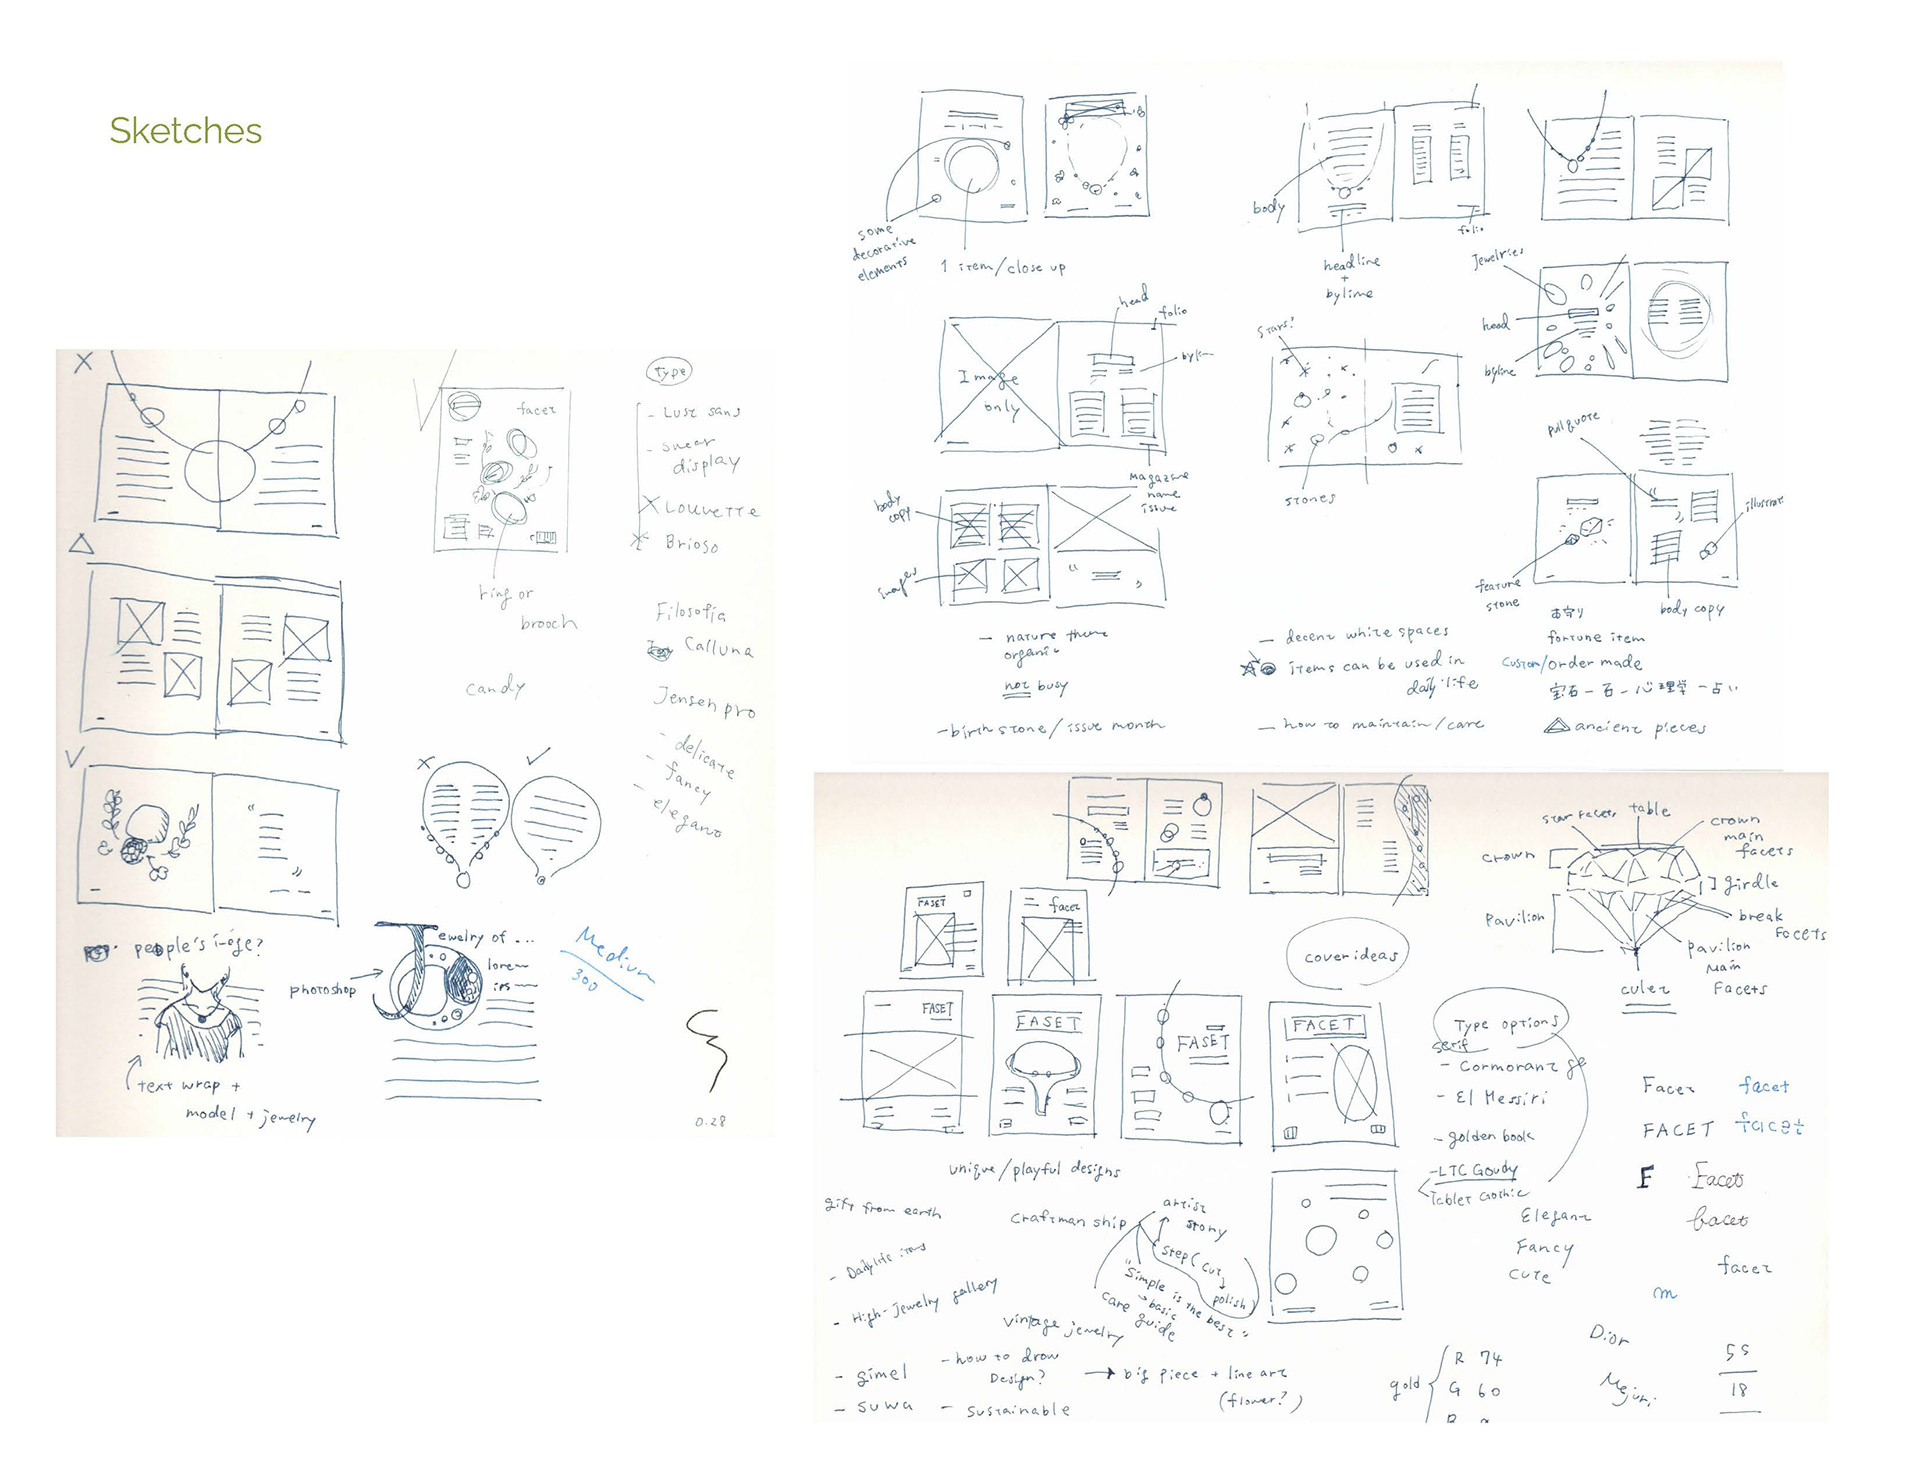 Sketches
type
- Lust sans
display
Louvette
Brioso
facet
ring or
brooch
Filosofia
Calluna
candy
Jensen pro
- delicate
- fancy
- elegant
people's image?
photoshop
ewelry of ...
lorem
Medium
300
text wrap +
model + jewelry
0.28
some
decorative
elements
1 item/close up
body
folio
headline
+
byline
Jewelries
head
byline
head
folio
Image
only
magazine
name
issue
body
copy
images
stars?
stones
pull quote
illustrat
feature
stone
body copy
- nature theme
organic
not busy
- birth stone / issue month
- decent white spaces
items can be used in
daily life
- how to maintain/care
お守り
fortune item
custom/order made
宝石 - 石 - 心理学 - 占い
ancient pieces
star facets
table
crown
main
facets
crown
girdle
pavilion
break
facets
pavilion
main
facets
culet
FASET
facet
cover ideas
FASET
FASET
FASET
FACET
Type options
serif
- Cormorant
- El Messiri
- golden book
- LTC Goudy
Elegant
Fancy
cute
Facet
facet
FACET
facet
F
Facet
facet
facet
m
unique/playful designs
gift from earth
- Daily life items
- High-jewelry gallery
- gimel
- suwa
craftman ship
artist
story
step (cut
polish)
"simple is the best"
→ basic
care guide
vintage jewelry
- how to draw
Design?
- sustainable
→ big piece + line art
(flower?)
gold
R 74
G 60
Dior
Mejuri
55
18